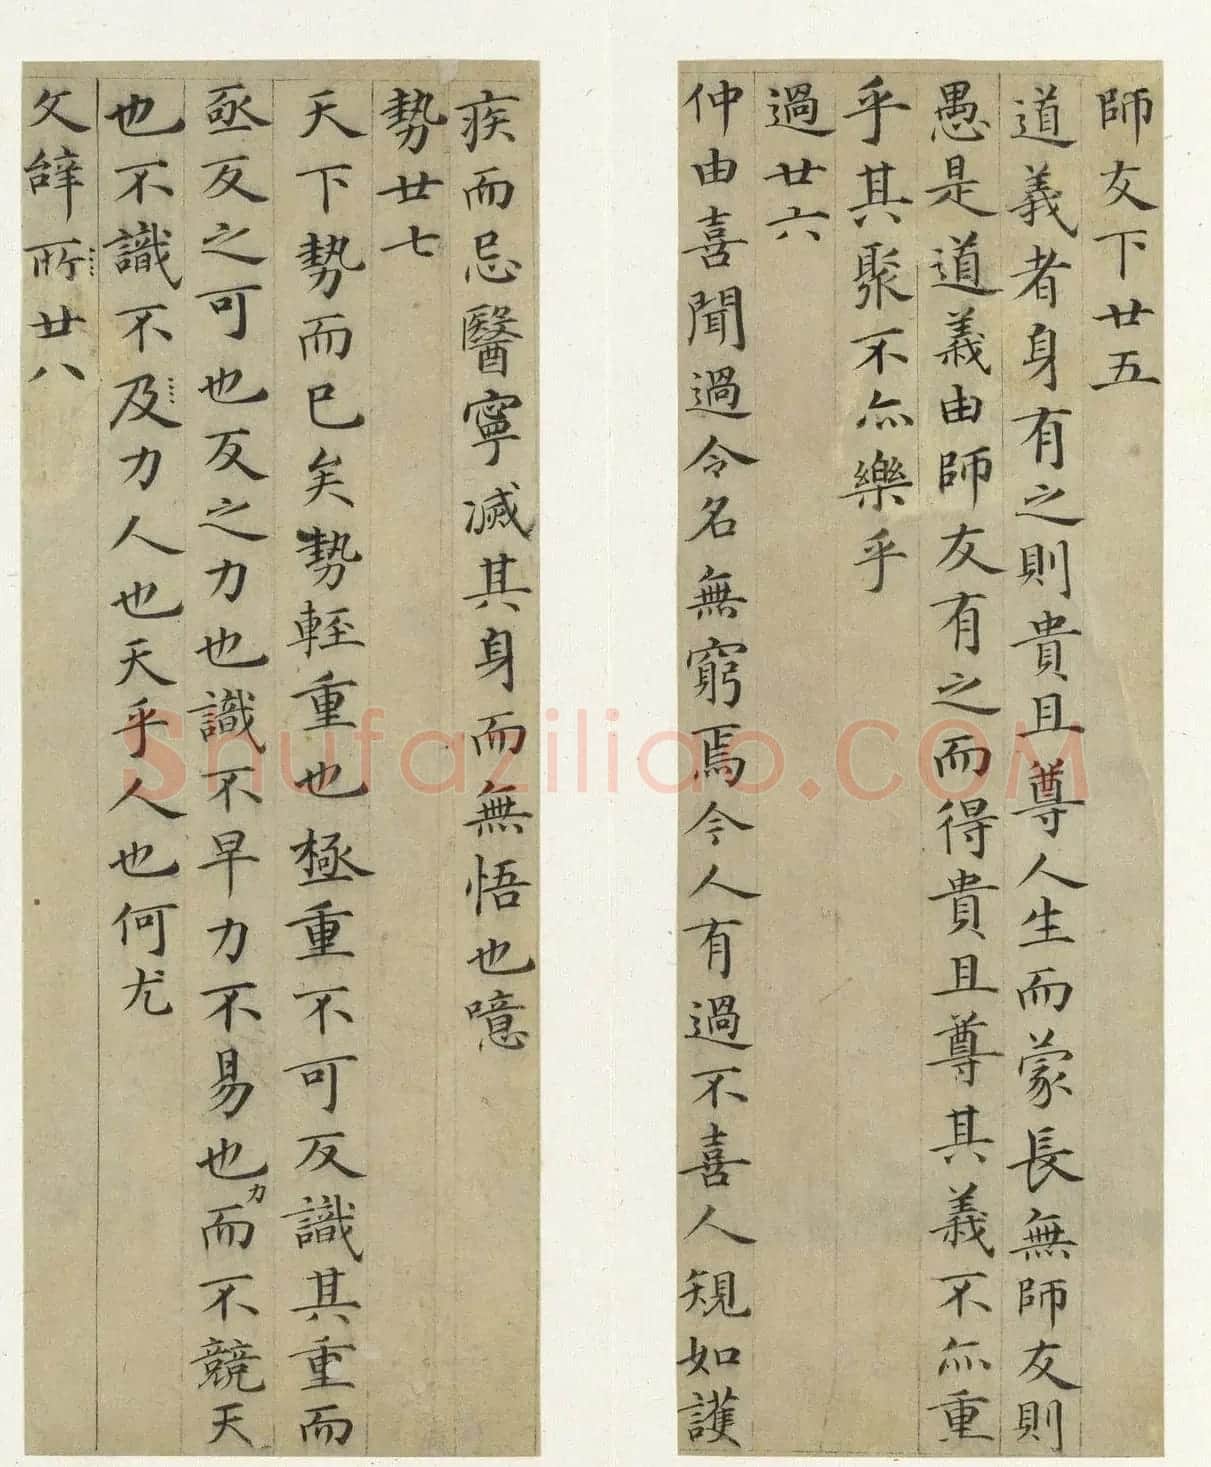 師友下廿五
道義者身有之則貴且尊人生而蒙長無師友則
愚是道義由師友有之而得貴且尊其義不亦重
乎其聚不亦樂乎
過廿六
仲由喜聞過令名無窮焉今人有過不喜人規如護
疾而忌醫寧滅其身而無悟也噫
勢廿七
天下勢而已矣勢輕重也極重不可反識其重而
亟反之可也反之力也識不早力不易也力而不競天
也不識不及力人也天乎人也何尤
文辭所廿八
Shufaziliao.COM